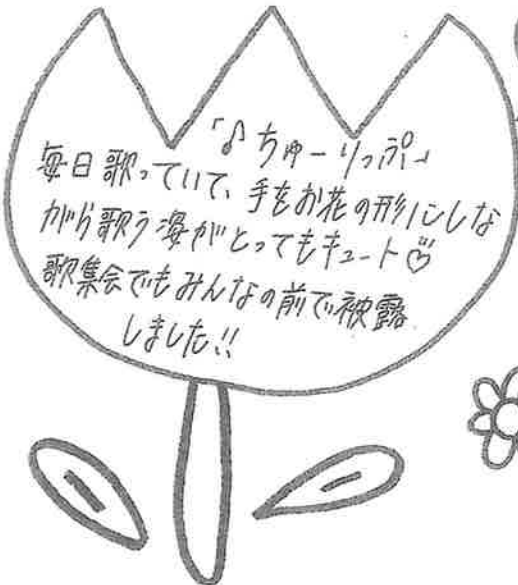 「♪ちゅーりっぷ」
毎日歌っていて、手をお花の形にしな
がら歌う姿がとってもキュート♡
歌集会でもみんなの前で被露
しました!!